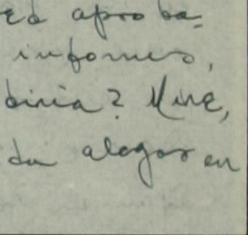 ed aproba-
informes,
diria? Mire,
da alegar en